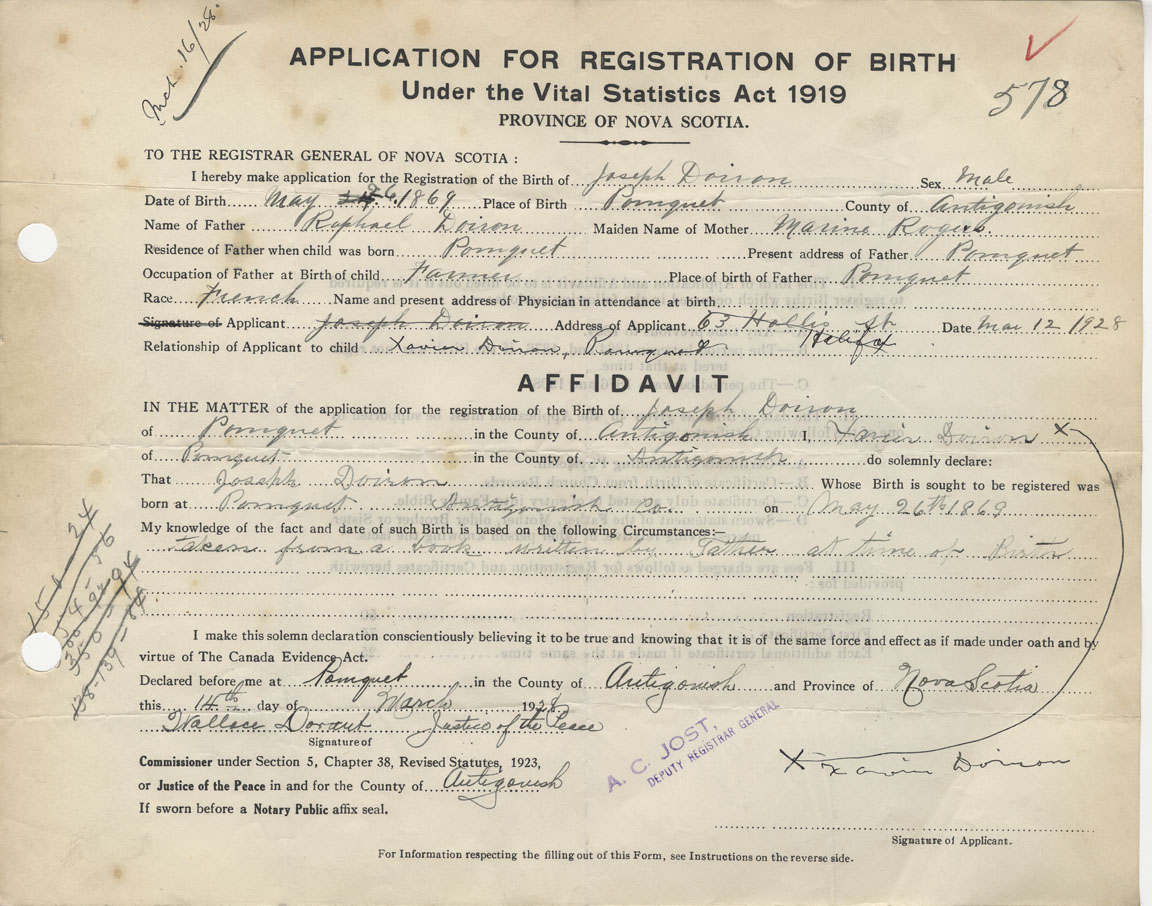 Mch. 16/28.
578
APPLICATION FOR REGISTRATION OF BIRTH
Under the Vital Statistics Act 1919
PROVINCE OF NOVA SCOTIA.
TO THE REGISTRAR GENERAL OF NOVA SCOTIA :
I hereby make application for the Registration of the Birth of Joseph Doiron Sex Male
Date of Birth May 26. 1869 Place of Birth Pomquet County of Antigonish
Name of Father Raphael Doiron Maiden Name of Mother Marine Rogers.
Residence of Father when child was born Pomquet Present address of Father Pomquet
Occupation of Father at Birth of child Farmer Place of birth of Father Pomquet
Race French Name and present address of Physician in attendance at birth
Signature of Applicant Joseph Doiron Address of Applicant 63 Hollis St Halifax Date Mar 12 1928
Relationship of Applicant to child Xavier Doiron, Pomquet
AFFIDAVIT
IN THE MATTER of the application for the registration of the Birth of Joseph Doiron
of Pomquet in the County of Antigonish I, Xavier Doiron X
of Pomquet in the County of Antigonish do solemnly declare:
That Joseph Doiron Whose Birth is sought to be registered was
born at Pomquet Antigonish Co. on May 26th 1869
My knowledge of the fact and date of such Birth is based on the following Circumstances:—
taken from a book written by Father at time of Birth
I make this solemn declaration conscientiously believing it to be true and knowing that it is of the same force and effect as if made under oath and by
virtue of The Canada Evidence Act.
Declared before me at Pomquet in the County of Antigonish and Province of Nova Scotia
this 14th day of March 1928
Wallace Dorant Justice of the Peace
Signature of
A. C. JOST,
DEPUTY REGISTRAR GENERAL
Commissioner under Section 5, Chapter 38, Revised Statutes, 1923,
X Xavier Doiron
or Justice of the Peace in and for the County of Antigonish
If sworn before a Notary Public affix seal.
Signature of Applicant.
For Information respecting the filling out of this Form, see Instructions on the reverse side.